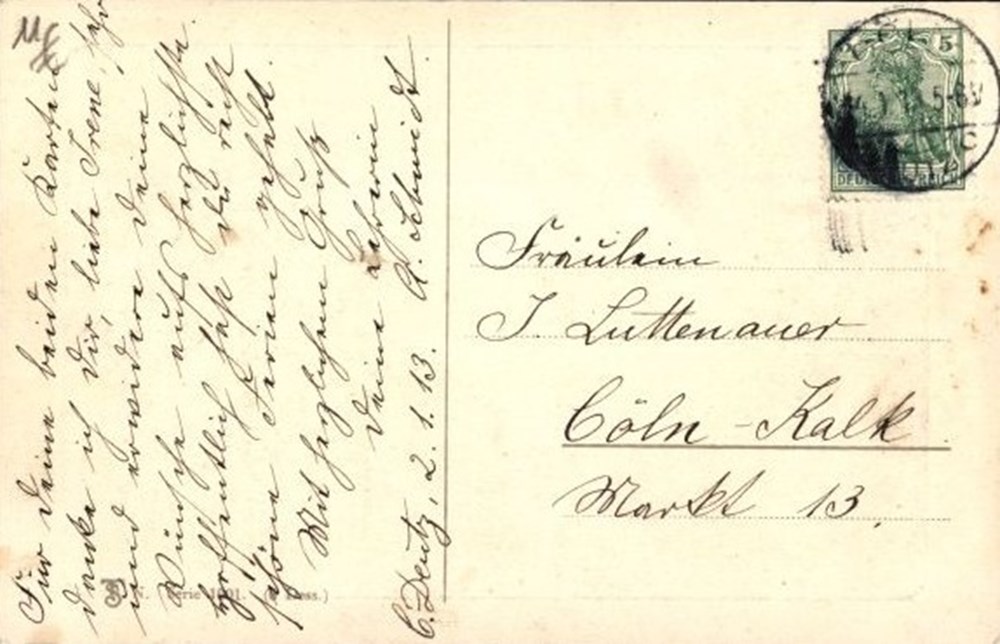 Für Deine beiden Karten
danke ich Dir, liebe Irene, sehr
und erwidere Deine
Wünsche aufs herzlichste.
Hoffentlich hast Du recht
schöne Ferien gehabt.
Mit herzlichem Gruß
Deine Lehrerin
A. Schmidt.
C. Deutz, 2. 1. 13.
N. Serie 1001. (Dess.)
5
5-6N
C
DEUTSCHES REICH
Fräulein
J. Luttenauer
Cöln-Kalk
Markt 13.